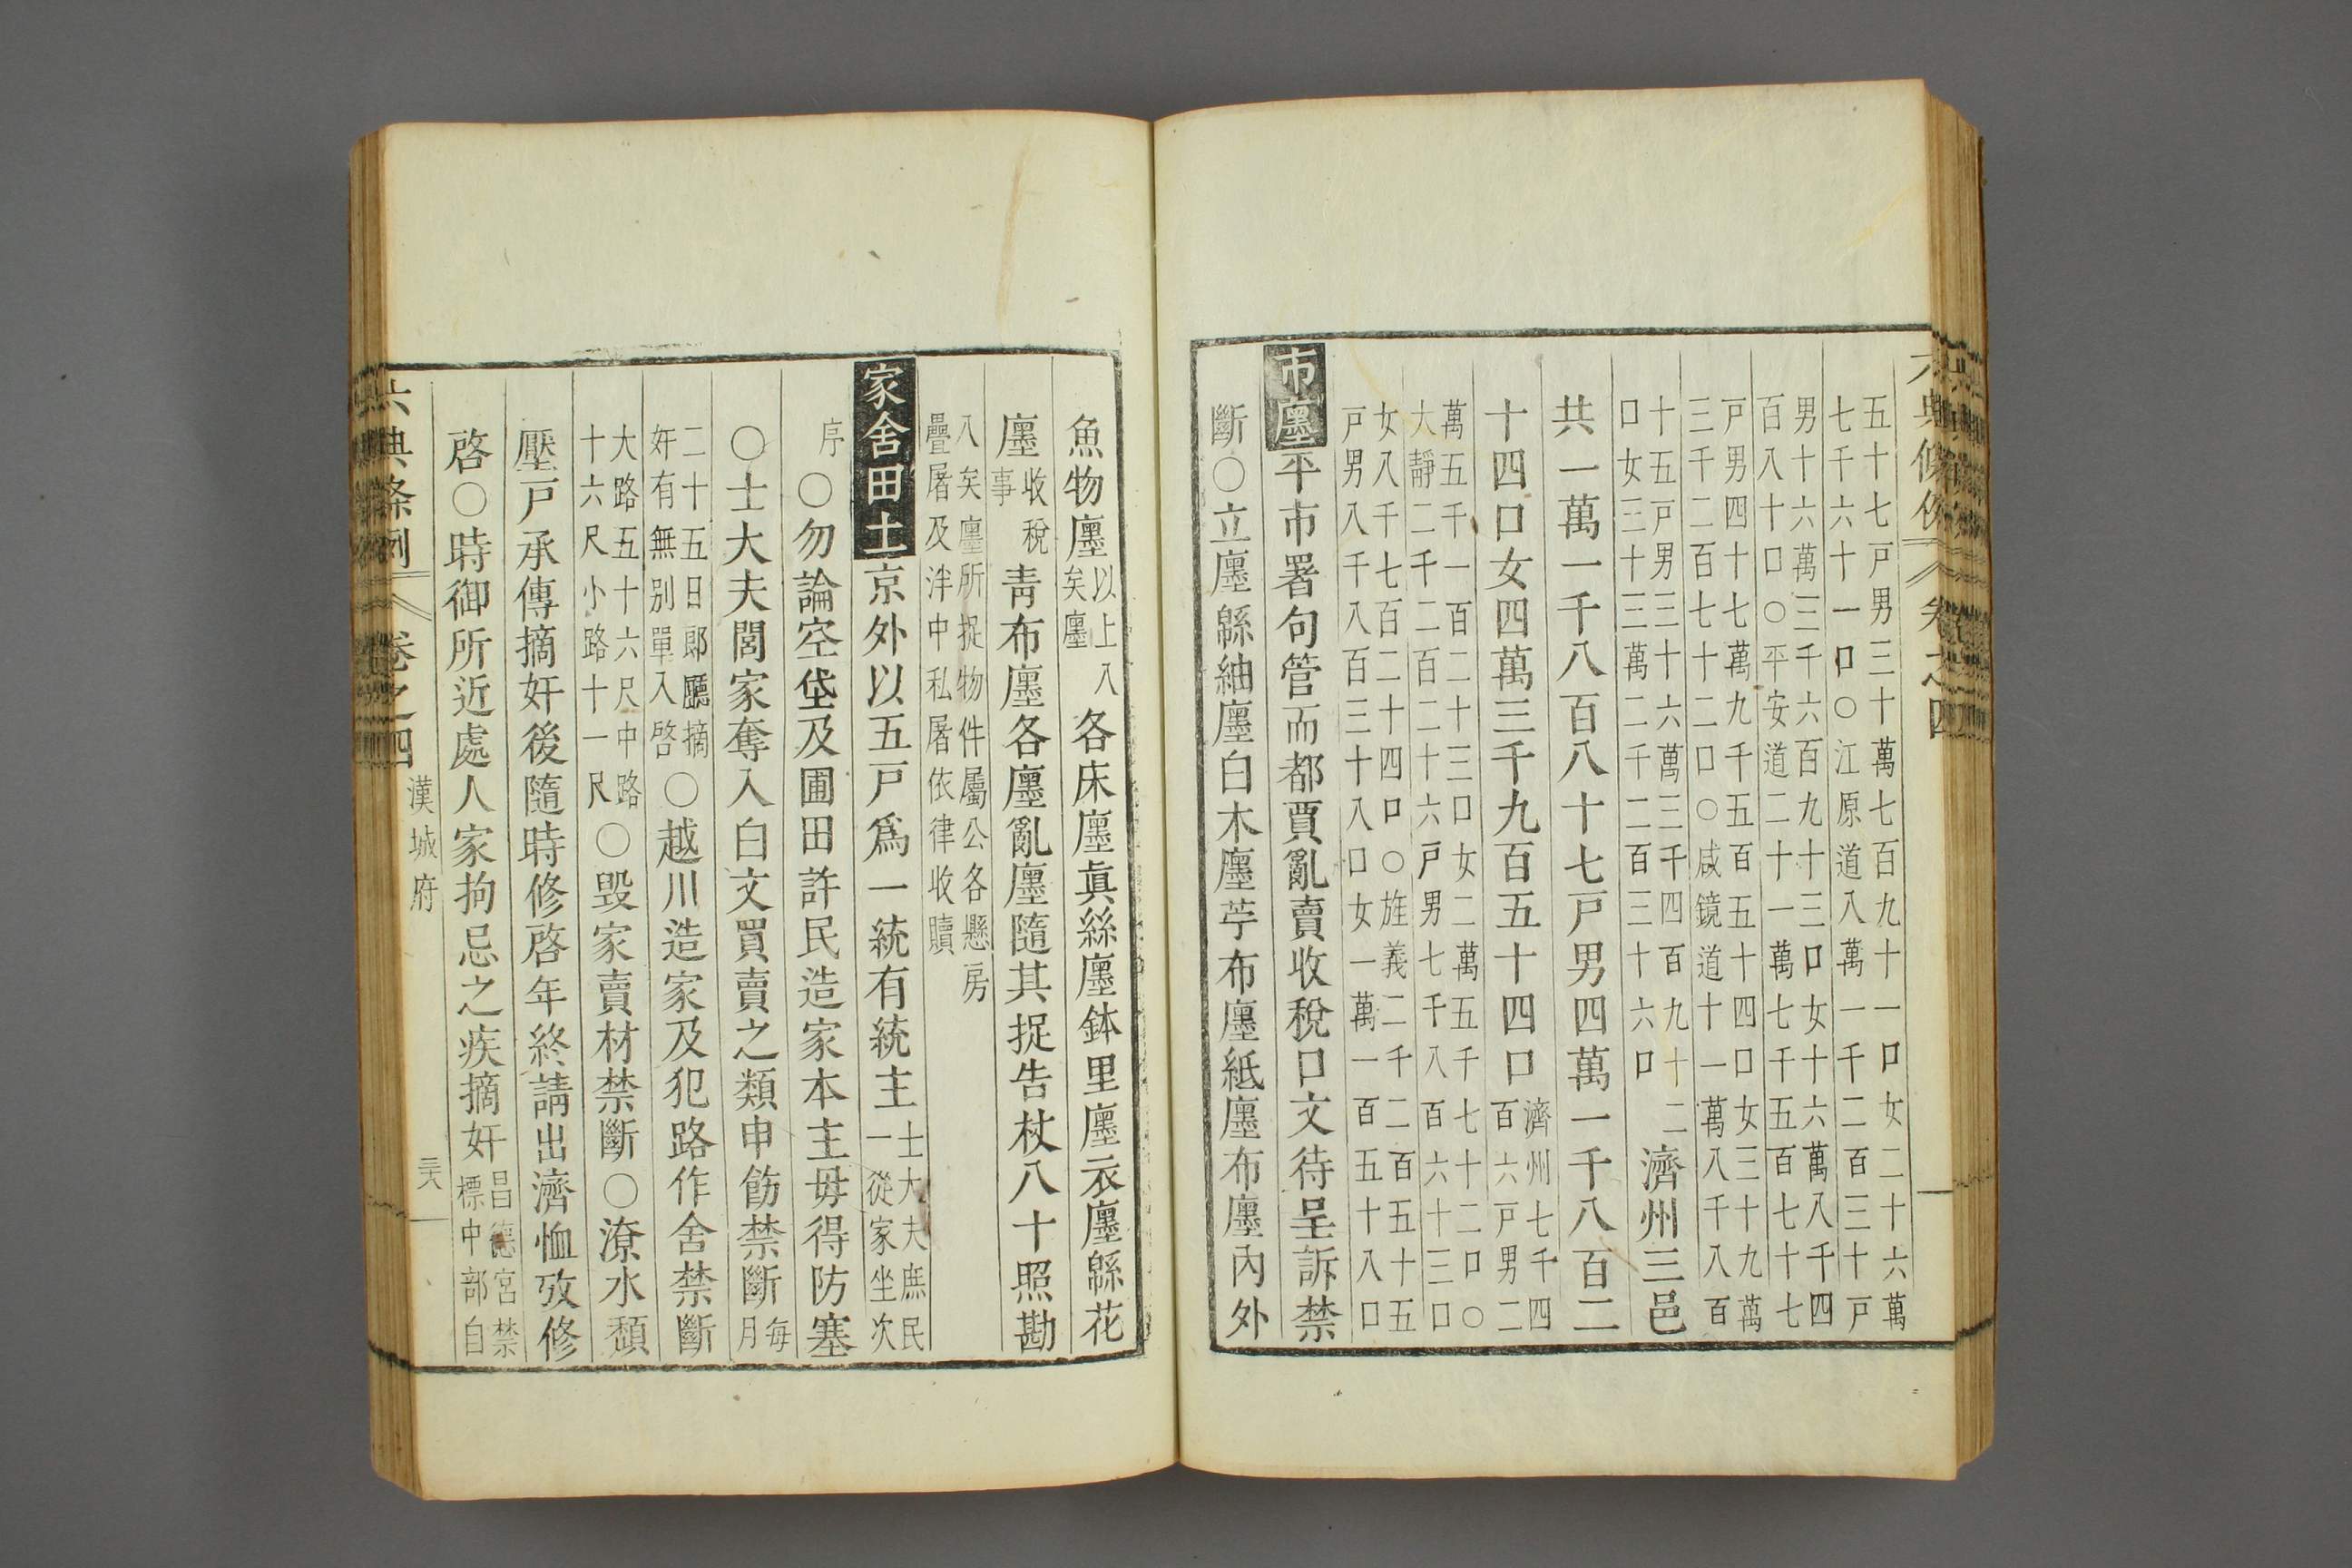 六典條例 卷之四
五十七戸男三十萬七百九十一口女二十六萬
七千六十一口○江原道八萬一千二百三十戸
男十六萬三千六百九十三口女十六萬八千四
百八十口○平安道二十一萬七千五百七十七
戸男四十七萬九千五百五十四口女三十九萬
三千二百七十二口○咸鏡道十一萬八千八百
十五戸男三十六萬三千四百九十二
口女三十三萬二千二百三十六口
濟州三邑
共一萬一千八百八十七戸男四萬一千八百二
十四口女四萬三千九百五十四口
濟州七千四
百六戸男二
萬五千一百二十三口女二萬五千七十二口○
大靜二千二百二十六戸男七千八百六十三口
女八千七百二十四口○旌義二千二百五十五
戸男八千八百三十八口女一萬一百五十八口
市廛平市署句管而都賈亂賣收稅口文待呈訴禁
斷○立廛緜紬廛白木廛苧布廛紙廛布廛內外
魚物廛
以上八
矣廛
各床廛眞絲廛鉢里廛衣廛緜花
廛
收稅
事
靑布廛各廛亂廛隨其捉告杖八十照勘
八矣廛所捉物件屬公各懸房
疊屠及泮中私屠依律收贖
家舍田土京外以五戸爲一統有統主
士大夫庶民
一從家坐次
序
○勿論空垈及圃田許民造家本主毋得防塞
○士大夫閭家奪入白文買賣之類申飭禁斷
每
月
二十五日郞廳摘
奸有無別單入啓
○越川造家及犯路作舍禁斷
大路五十六尺中路
十六尺小路十一尺
○毁家賣材禁斷○潦水頹
壓戸承傳摘奸後隨時修啓年終請出濟恤攷修
啓○時御所近處人家拘忌之疾摘奸
昌德宮禁
標中部自
六典條例 卷之四 漢城府 三六